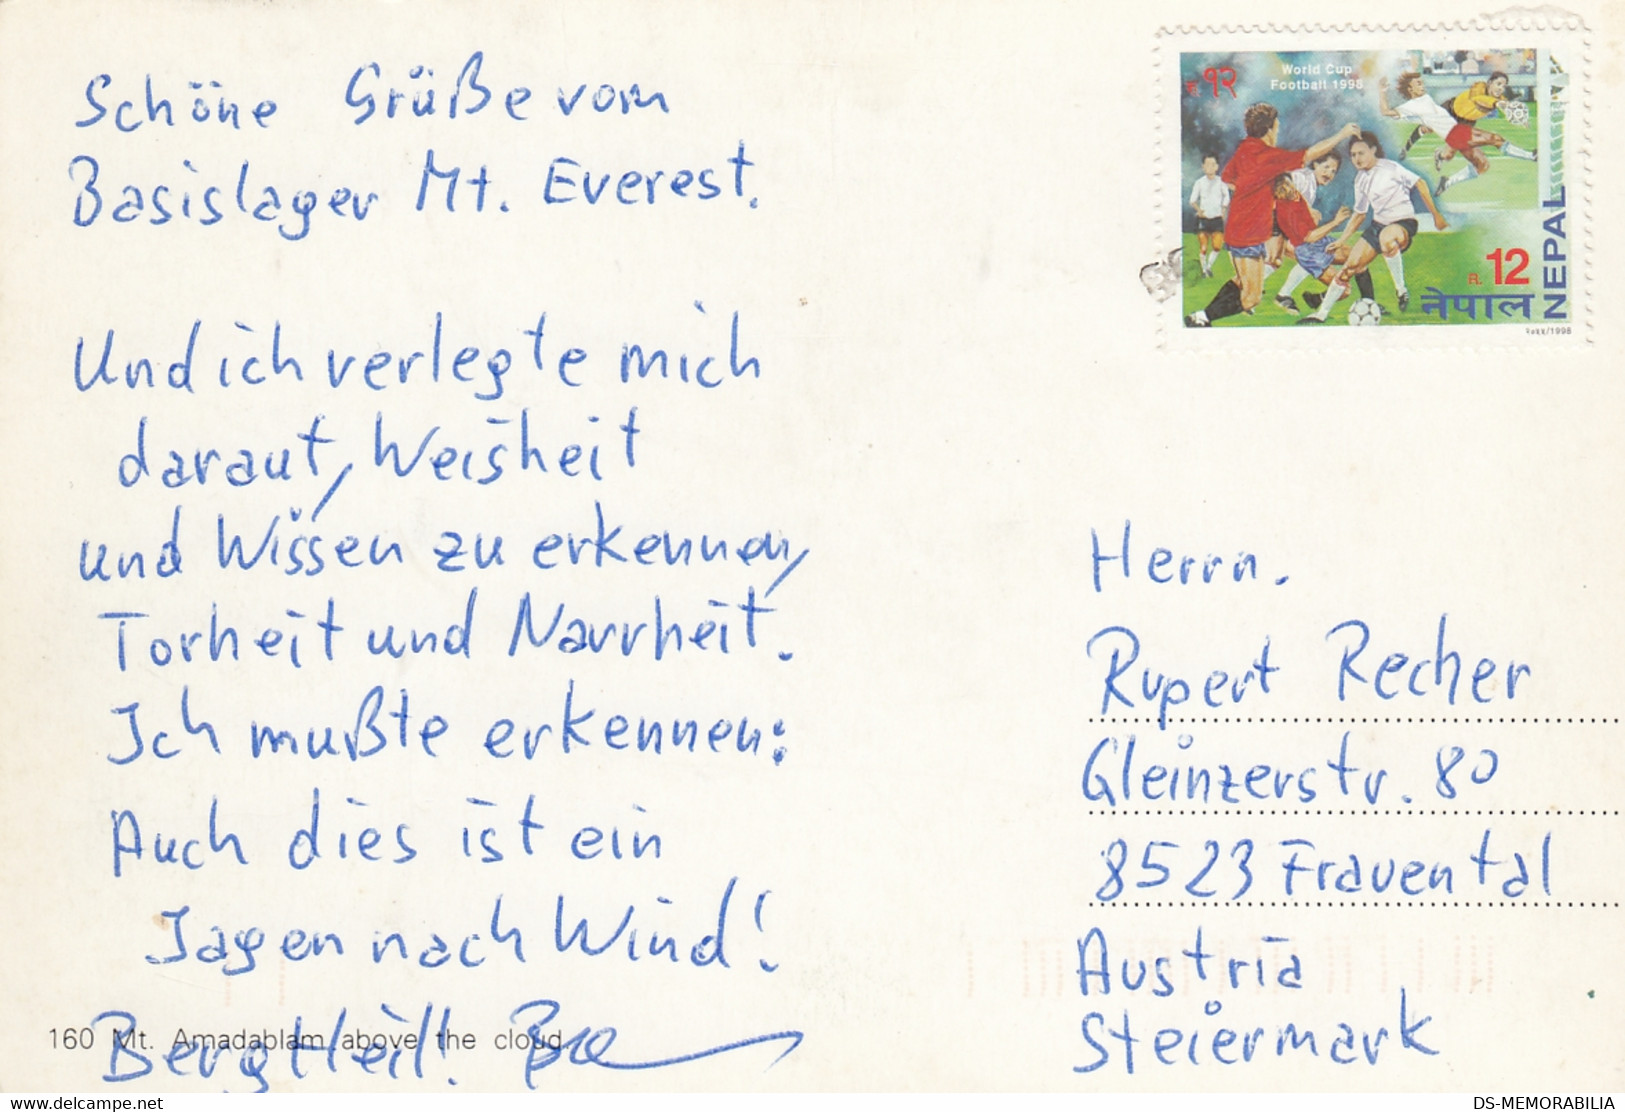 Schöne Grüße vom
Basislager Mt. Everest.
Und ich verlegte mich
darauf, Weisheit
und Wissen zu erkennen,
Torheit und Narrheit.
Ich mußte erkennen:
Auch dies ist ein
Jagen nach Wind!
Berg Heil!
160 Mt. Amadablam above the cloud
World Cup
Football 1998
रु १२
R. 12
नेपाल
NEPAL
1998
Herrn.
Rupert Recher
Gleinzerstr. 80
8523 Frauental
Austria
Steiermark
www.delcampe.net
DS-MEMORABILIA